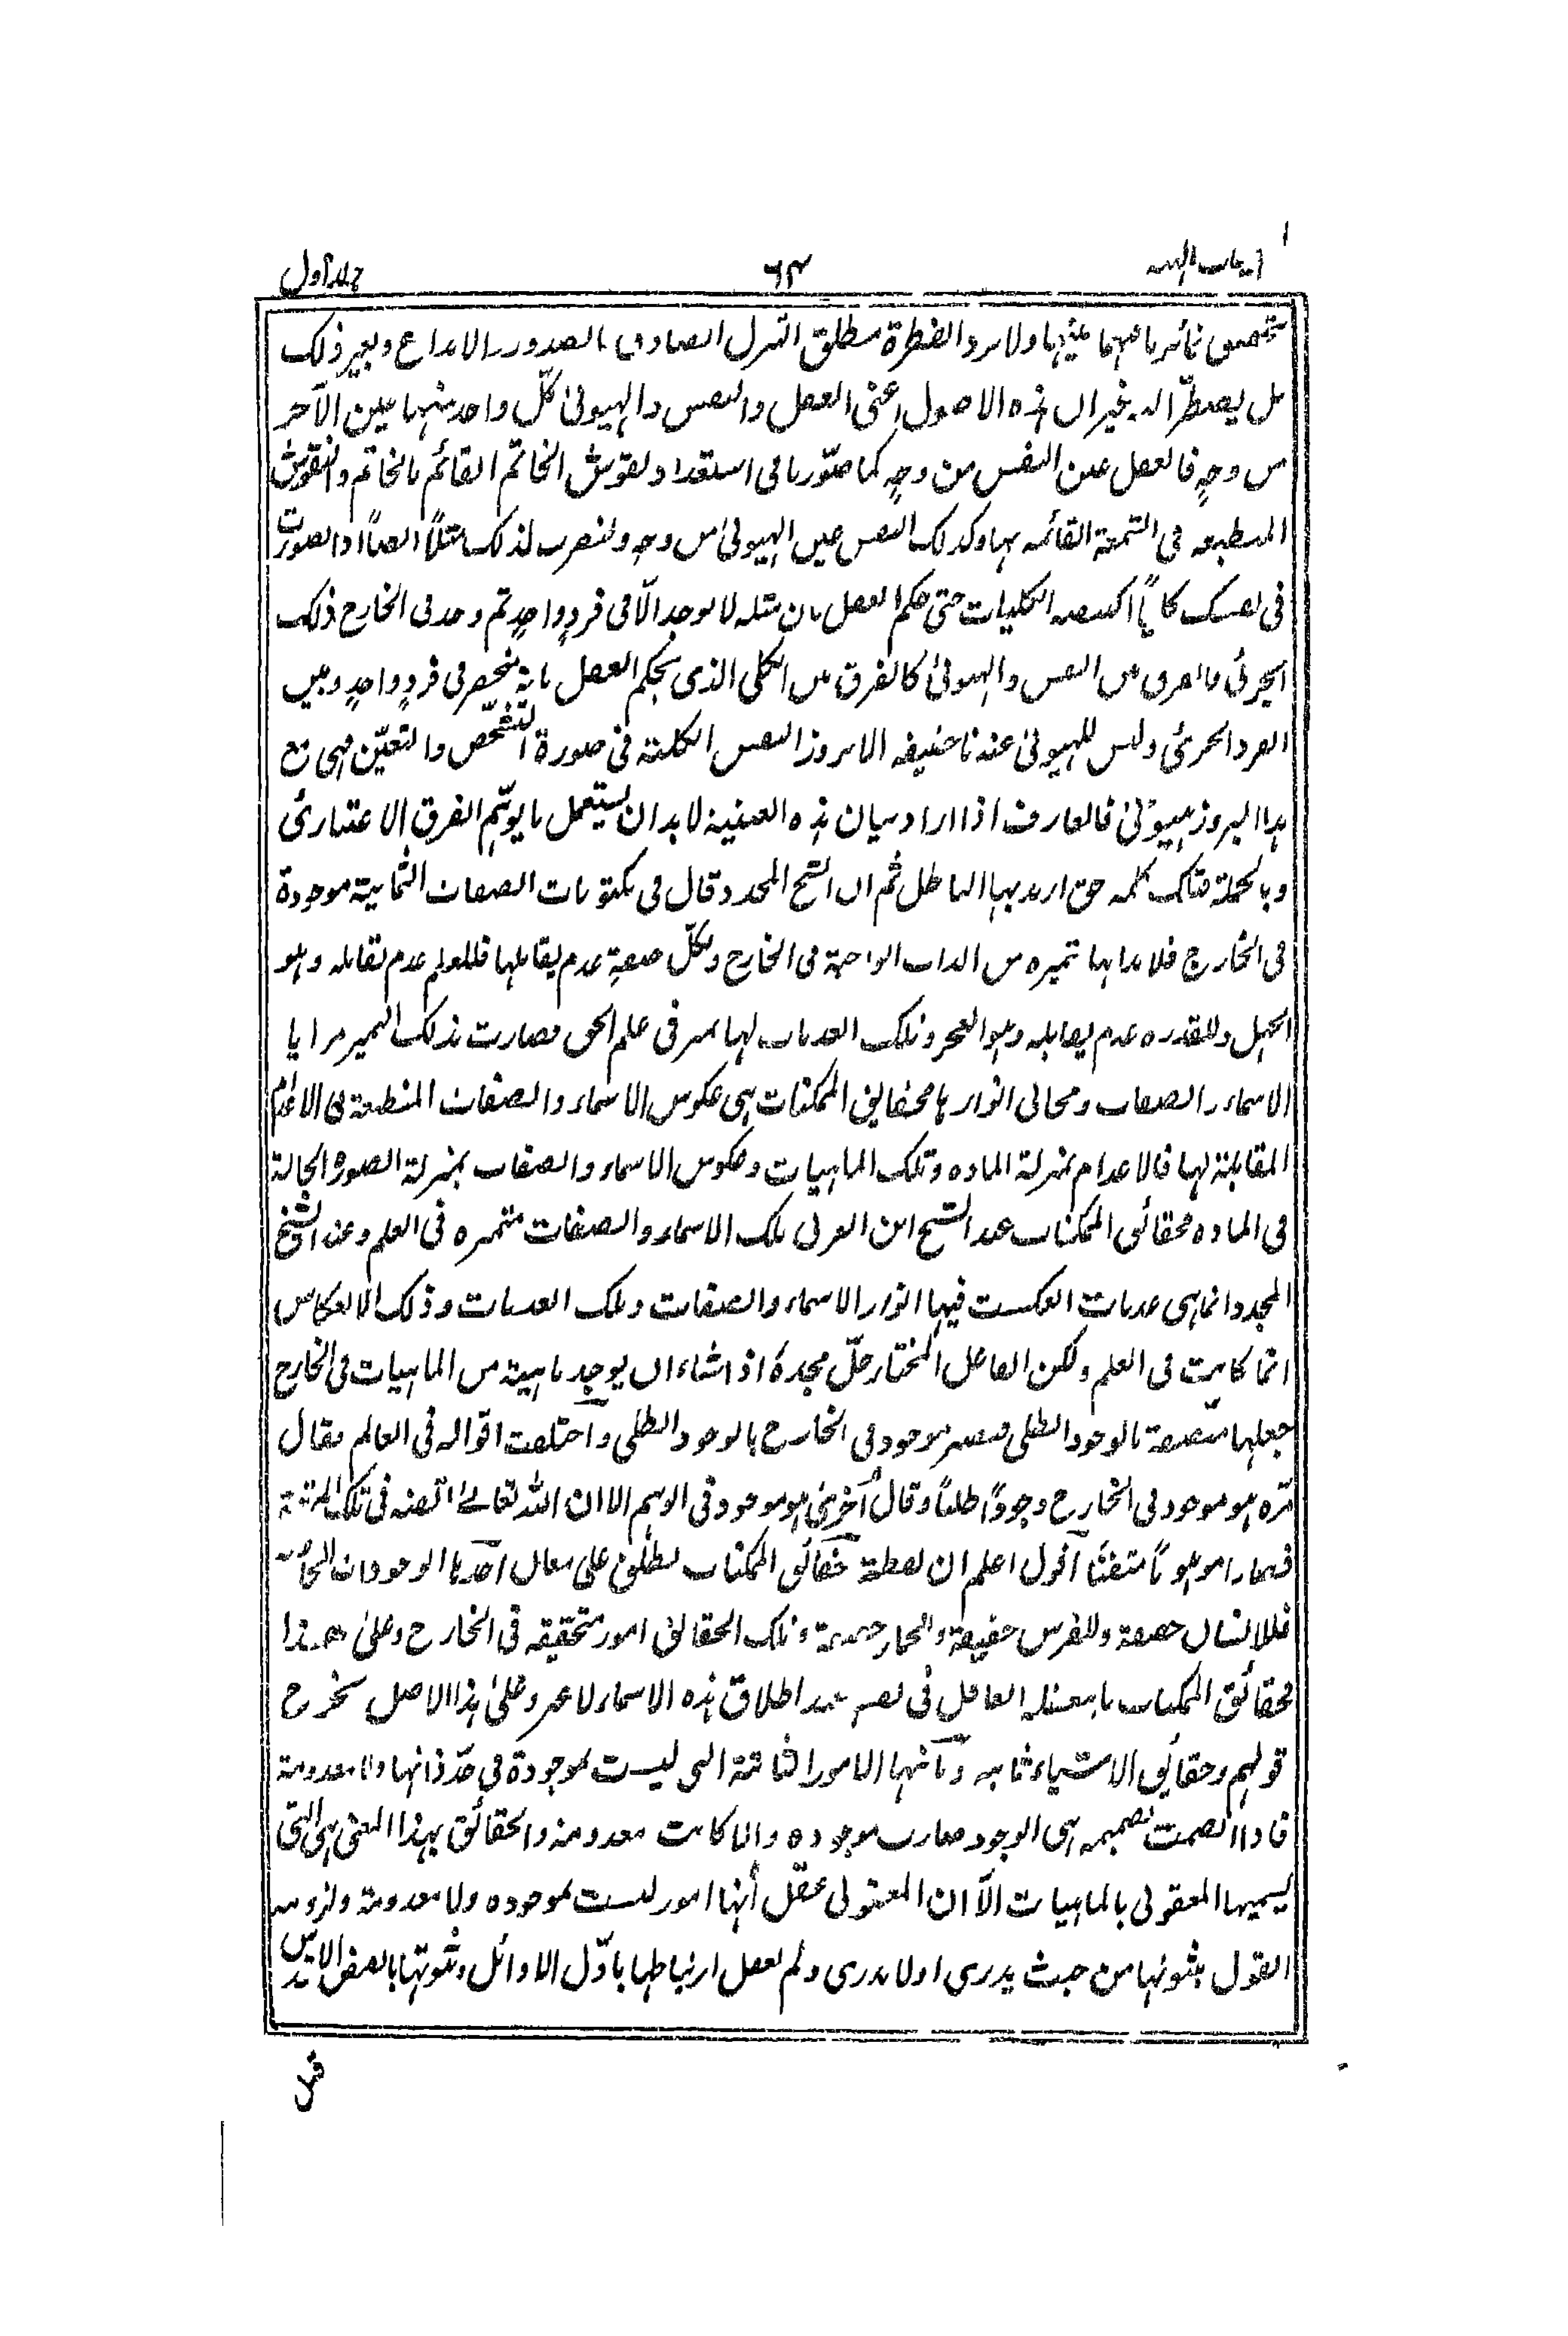 جلد اول
۶۴
بل يضطر الى غير ان هذه الاصول اعنى العقل والنفس والهيولى كل واحد منها عين الآخر
من وجه فالعقل عين النفس من وجه كما صورنا فى استعداد نقوش الخاتم القائم بالخاتم والنقوش
المنطبعة فى الشمعة القائمة بها وكذلك النفس عين الهيولى من وجه ولنضرب لذلك مثلا ايضا اذا تصورت
فى نفسك كليا اكتسبه الكليات حتى حكم العقل بان مثله لا يوجد الا فى فرد واحد ثم وجد فى الخارج ذلك
الجزئى فالفرق بين النفس والهيولى كالفرق بين الكلى الذى يحكم العقل بانه منحصر فى فرد واحد وبين
الفرد الجزئى وليس للهيولى عندنا حقيقة الا بروز النفس الكلية فى صورة التشخص والتعين فهى مع
هذا البروز هيولى فالعارف اذا اراد بيان هذه العينية لا بد ان يستعمل ما يوهم الفرق الاعتبارى
وبالجملة فتلك كلمة حق اريد بها الباطل ثم ان الشيخ المجدد قال فى مكتوبات الصفات الثمانية موجودة
فى الخارج فلا بد انها تميزه من الذات الواجبة فى الخارج ولكل صفة عدم يقابلها فللعلم عدم تقابله وهو
الجهل وللقدرة عدم يقابله وهو العجز وتلك العدمات لها تميز فى علم الحق فصارت بذلك التميز مرايا
الاسماء والصفات ومجالى انوارها فحقايق الممكنات هى عكوس الاسماء والصفات المنطبعة فى الاعدام
المقابلة لها فالاعدام بمنزلة المادة وتلك الماهيات وعكوس الاسماء والصفات بمنزلة الصورة الحالة
فى المادة فحقائق الممكنات عند الشيخ ابن العربى تلك الاسماء والصفات متميزه فى العلم وعند الشيخ
المجدد انما هى عدمات انعكست فيها انوار الاسماء والصفات وتلك العدمات وذلك الانعكاس
انما كانت فى العلم ولكن الفاعل المختار جل مجده اذا شاء ان يوجد ماهية من الماهيات فى الخارج
جعلها متصفة بالوجود الظلى فتصير موجود فى الخارج بالوجود الظلى واختلفت اقواله فى العالم فقال
مره هو موجود فى الخارج وجودا ظليا وقال اخرى هو موجود فى الوهم الا ان الله تعالى اتقنه فى تلك المرتبة
فصار امرا موهوما متقنا اقول اعلم ان لفظة حقائق الممكنات تطلق على معان احدها الوجودات الخاصة
فللانسان حقيقة وللفرس حقيقة وللحمار حقيقة وتلك الحقائق امور متحققه فى الخارج وعلى هذا
فحقائق الممكنات ما يعتقله العاقل فى نفسه عند اطلاق هذه الاسماء لا غير وعلى هذا الاصل يخرج
قولهم وحقايق الاشياء ثابته وثانيها الامور الثابتة التى ليست بموجودة فى حد ذاتها ولا معدومة
فاذا انضمت بضميمه هى الوجود صارت موجوده والا كانت معدومة والحقائق بهذا المعنى هى التى
يسميها المعقولى بالماهيات الا ان المعقولى عقل انها امور ليست بموجوده ولا معدومة ولزومه
القول بثبوتها من حيث يدرى اولا يدرى ولم يعقل ارتباطها باول الاوائل وثبوتها بالفيض الاقدس
قبل